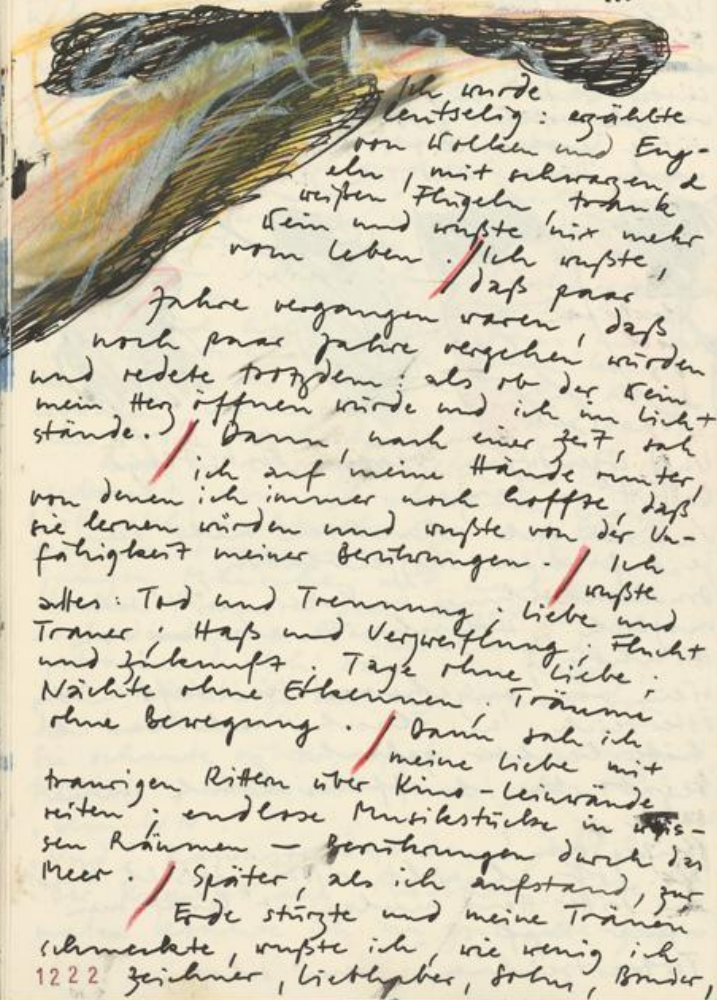 Ich wurde
leutselig : erzählte
von Wolken und Eng-
eln , mit schwarzen, &
weißen Flügeln , trank
Wein und wußte nix mehr
vom Leben . / Ich wußte ,
daß paar
Jahre vergangen waren , daß
noch paar Jahre vergehen würden
und redete trotzdem : als ob der Wein
mein Herz öffnen würde und ich im Licht
stände . / Dann , nach einer Zeit , sah
ich auf meine Hände runter ,
von denen ich immer noch hoffte , daß
sie lernen würden und wußte von der Un-
fähigkeit meiner Berührungen . / Ich
wußte
alles : Tod und Trennung ; Liebe und
Trauer ; Haß und Verzweiflung ; Flucht
und Zukunft . Tage ohne Liebe ;
Nächte ohne Erkennen , Träume
ohne Bewegung . / Dann sah ich
meine Liebe mit
traurigen Rittern über Kino-Leinwände
reiten ; endlose Musikstücke in weis-
sen Räumen — Berührungen durch das
Meer . / Später , als ich aufstand , zur
Erde stürzte und meine Tränen
schmeckte , wußte ich , wie wenig ich
1222 Zeichner , Liebhaber , Sohn , Bruder ,